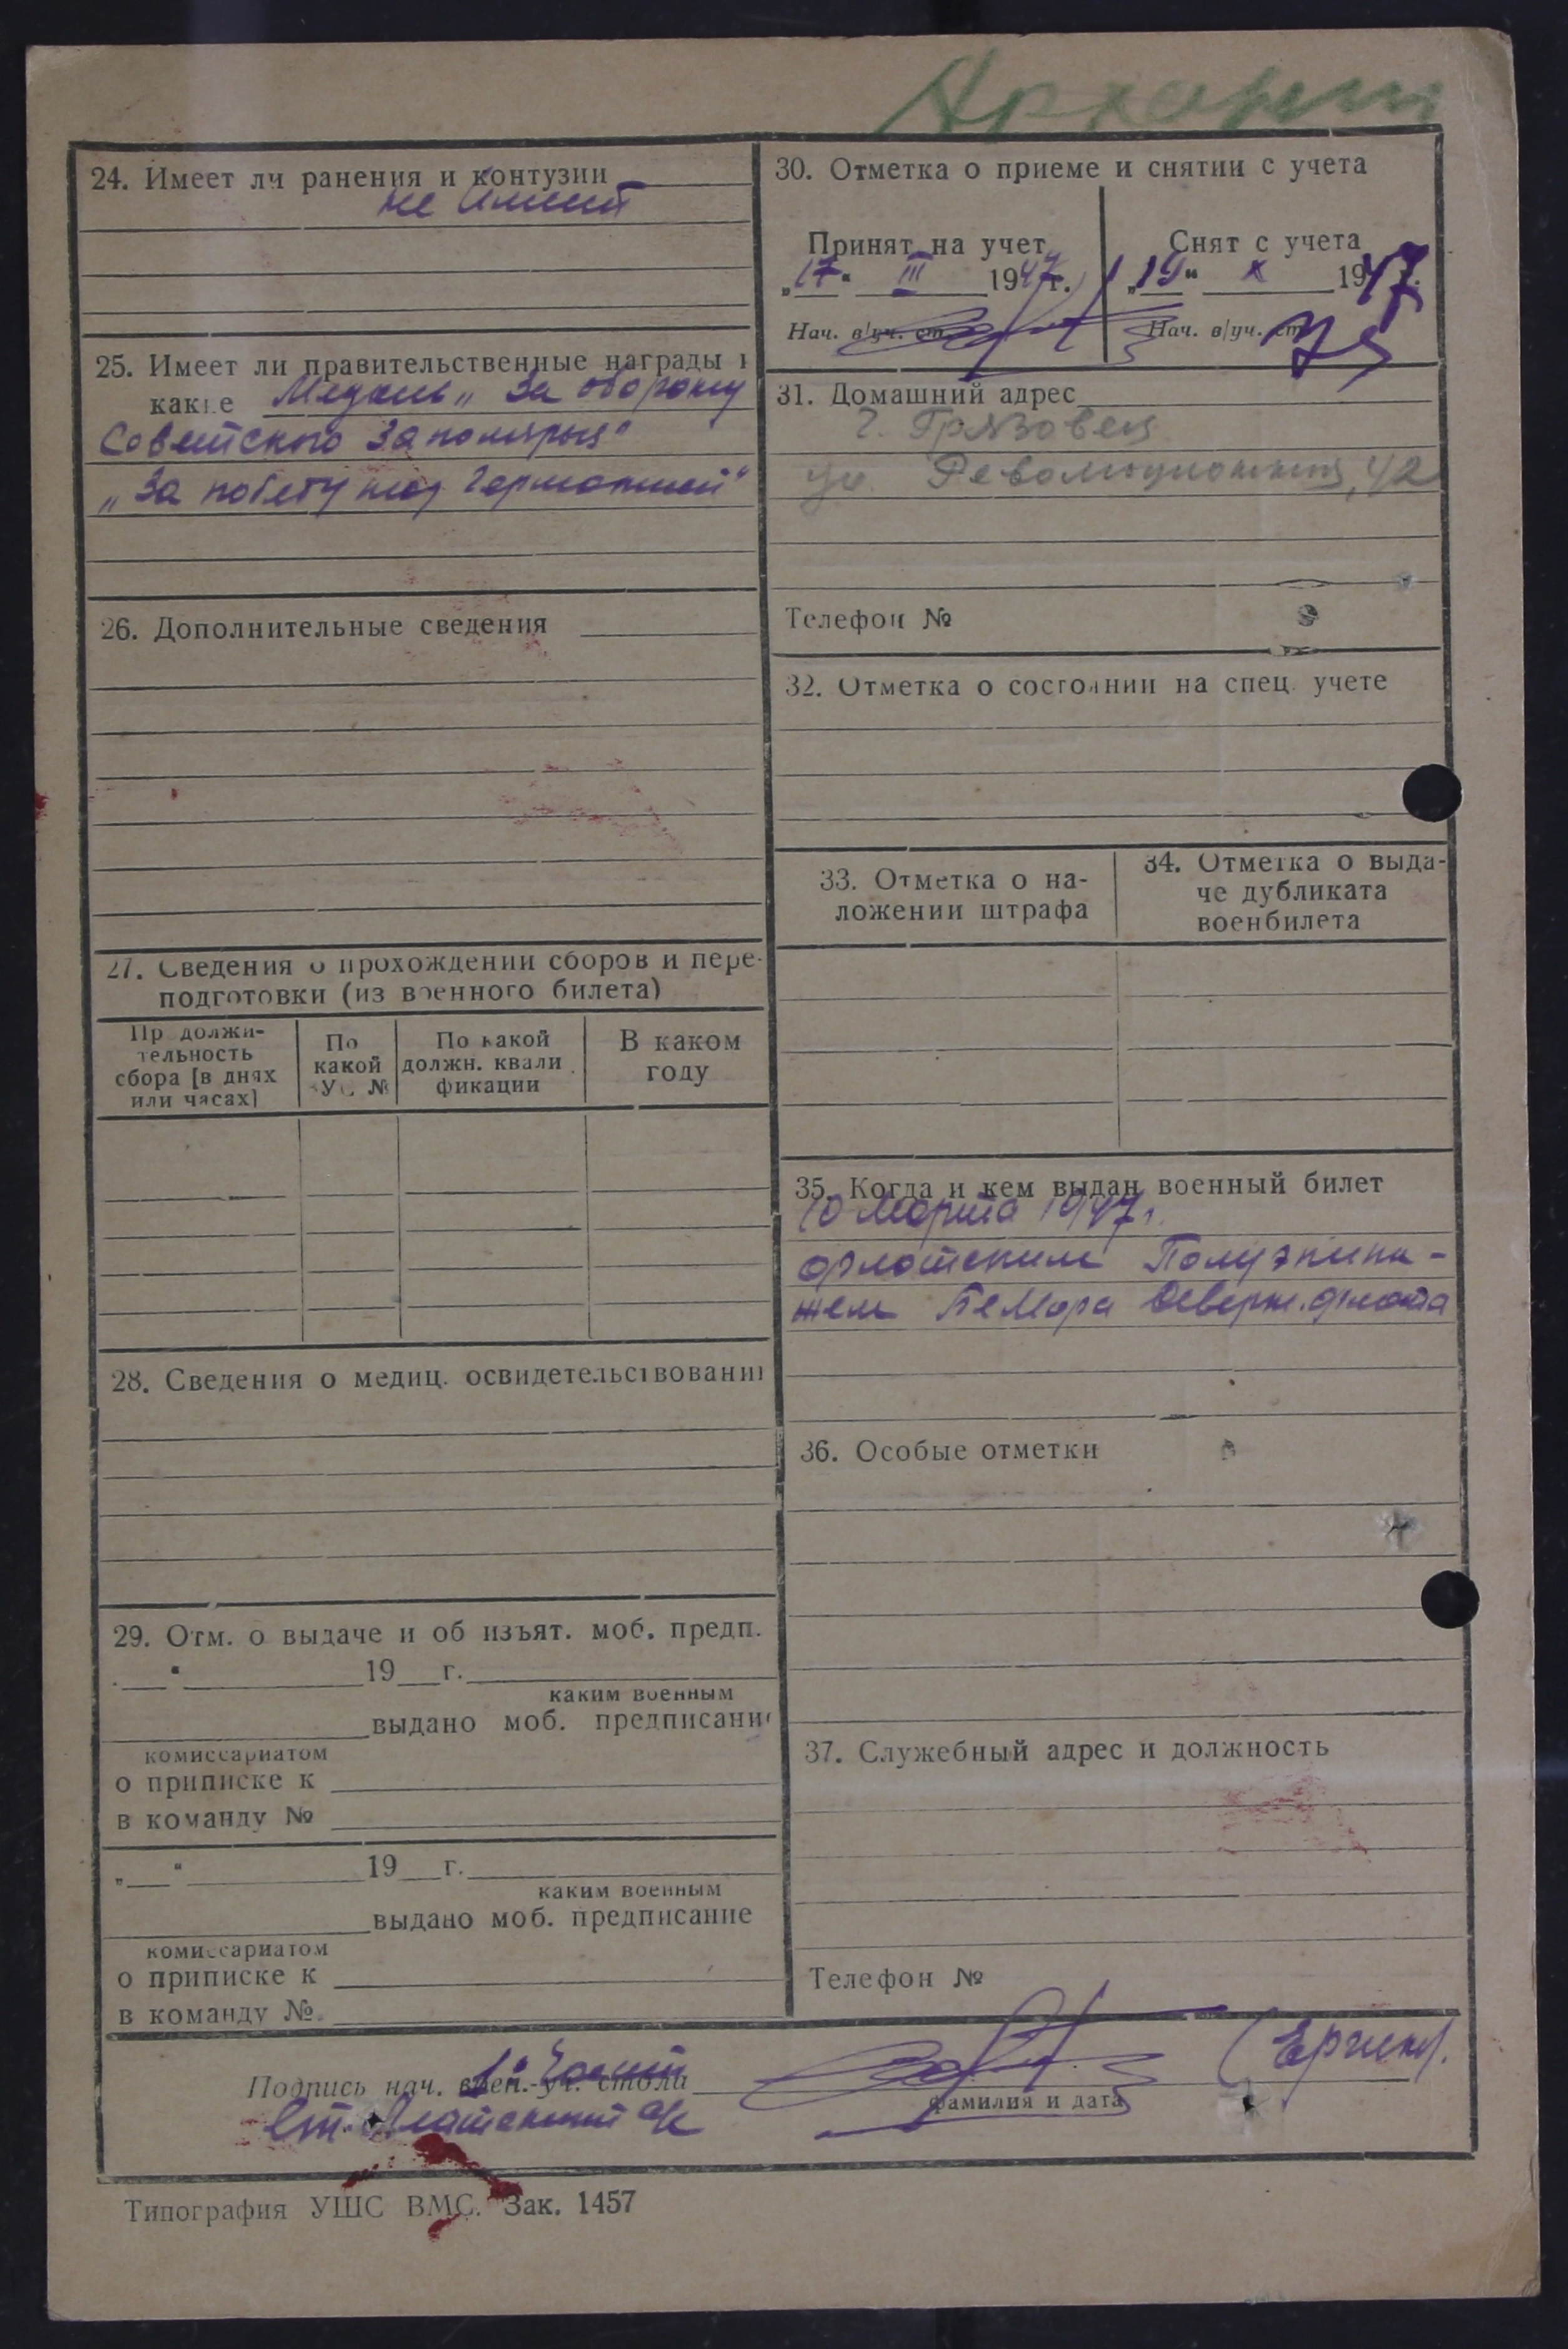 24. Имеет ли ранения и контузии
не имеет
25. Имеет ли правительственные награды и
какие Медаль „За оборону
Советского Заполярья"
„За победу над Германией"
26. Дополнительные сведения
27. Сведения о прохождении сборов и пере-
подготовки (из военного билета)
Продолжи-
тельность
сбора [в днях
или часах]
По
какой
ВУС №
По какой
должн. квали
фикации
В каком
году
28. Сведения о медиц. освидетельствовании
29. Отм. о выдаче и об изъят. моб. предп.
„ " 19 г.
каким военным
выдано моб. предписание
комиссариатом
о приписке к
в команду №
„ " 19 г.
каким военным
выдано моб. предписание
комиссариатом
о приписке к
в команду №.
30. Отметка о приеме и снятии с учета
Принят на учет
„17" III 1947г.
Нач. в/уч. ст.
Снят с учета
„19" X 1947.
Нач. в/уч. ст.
31. Домашний адрес
г. Грязовец
ул. Революционная, 42
Телефон №
32. Отметка о состоянии на спец. учете
33. Отметка о на-
ложении штрафа
34. Отметка о выда-
че дубликата
военбилета
35. Когда и кем выдан военный билет
10 Марта 1947г.
флотским Полуэкипа-
жем БеМора Северн. флота
36. Особые отметки
37. Служебный адрес и должность
Телефон №
Подпись нач. воен.-уч. стола
фамилия и дата
Типография УШС ВМС. Зак. 1457